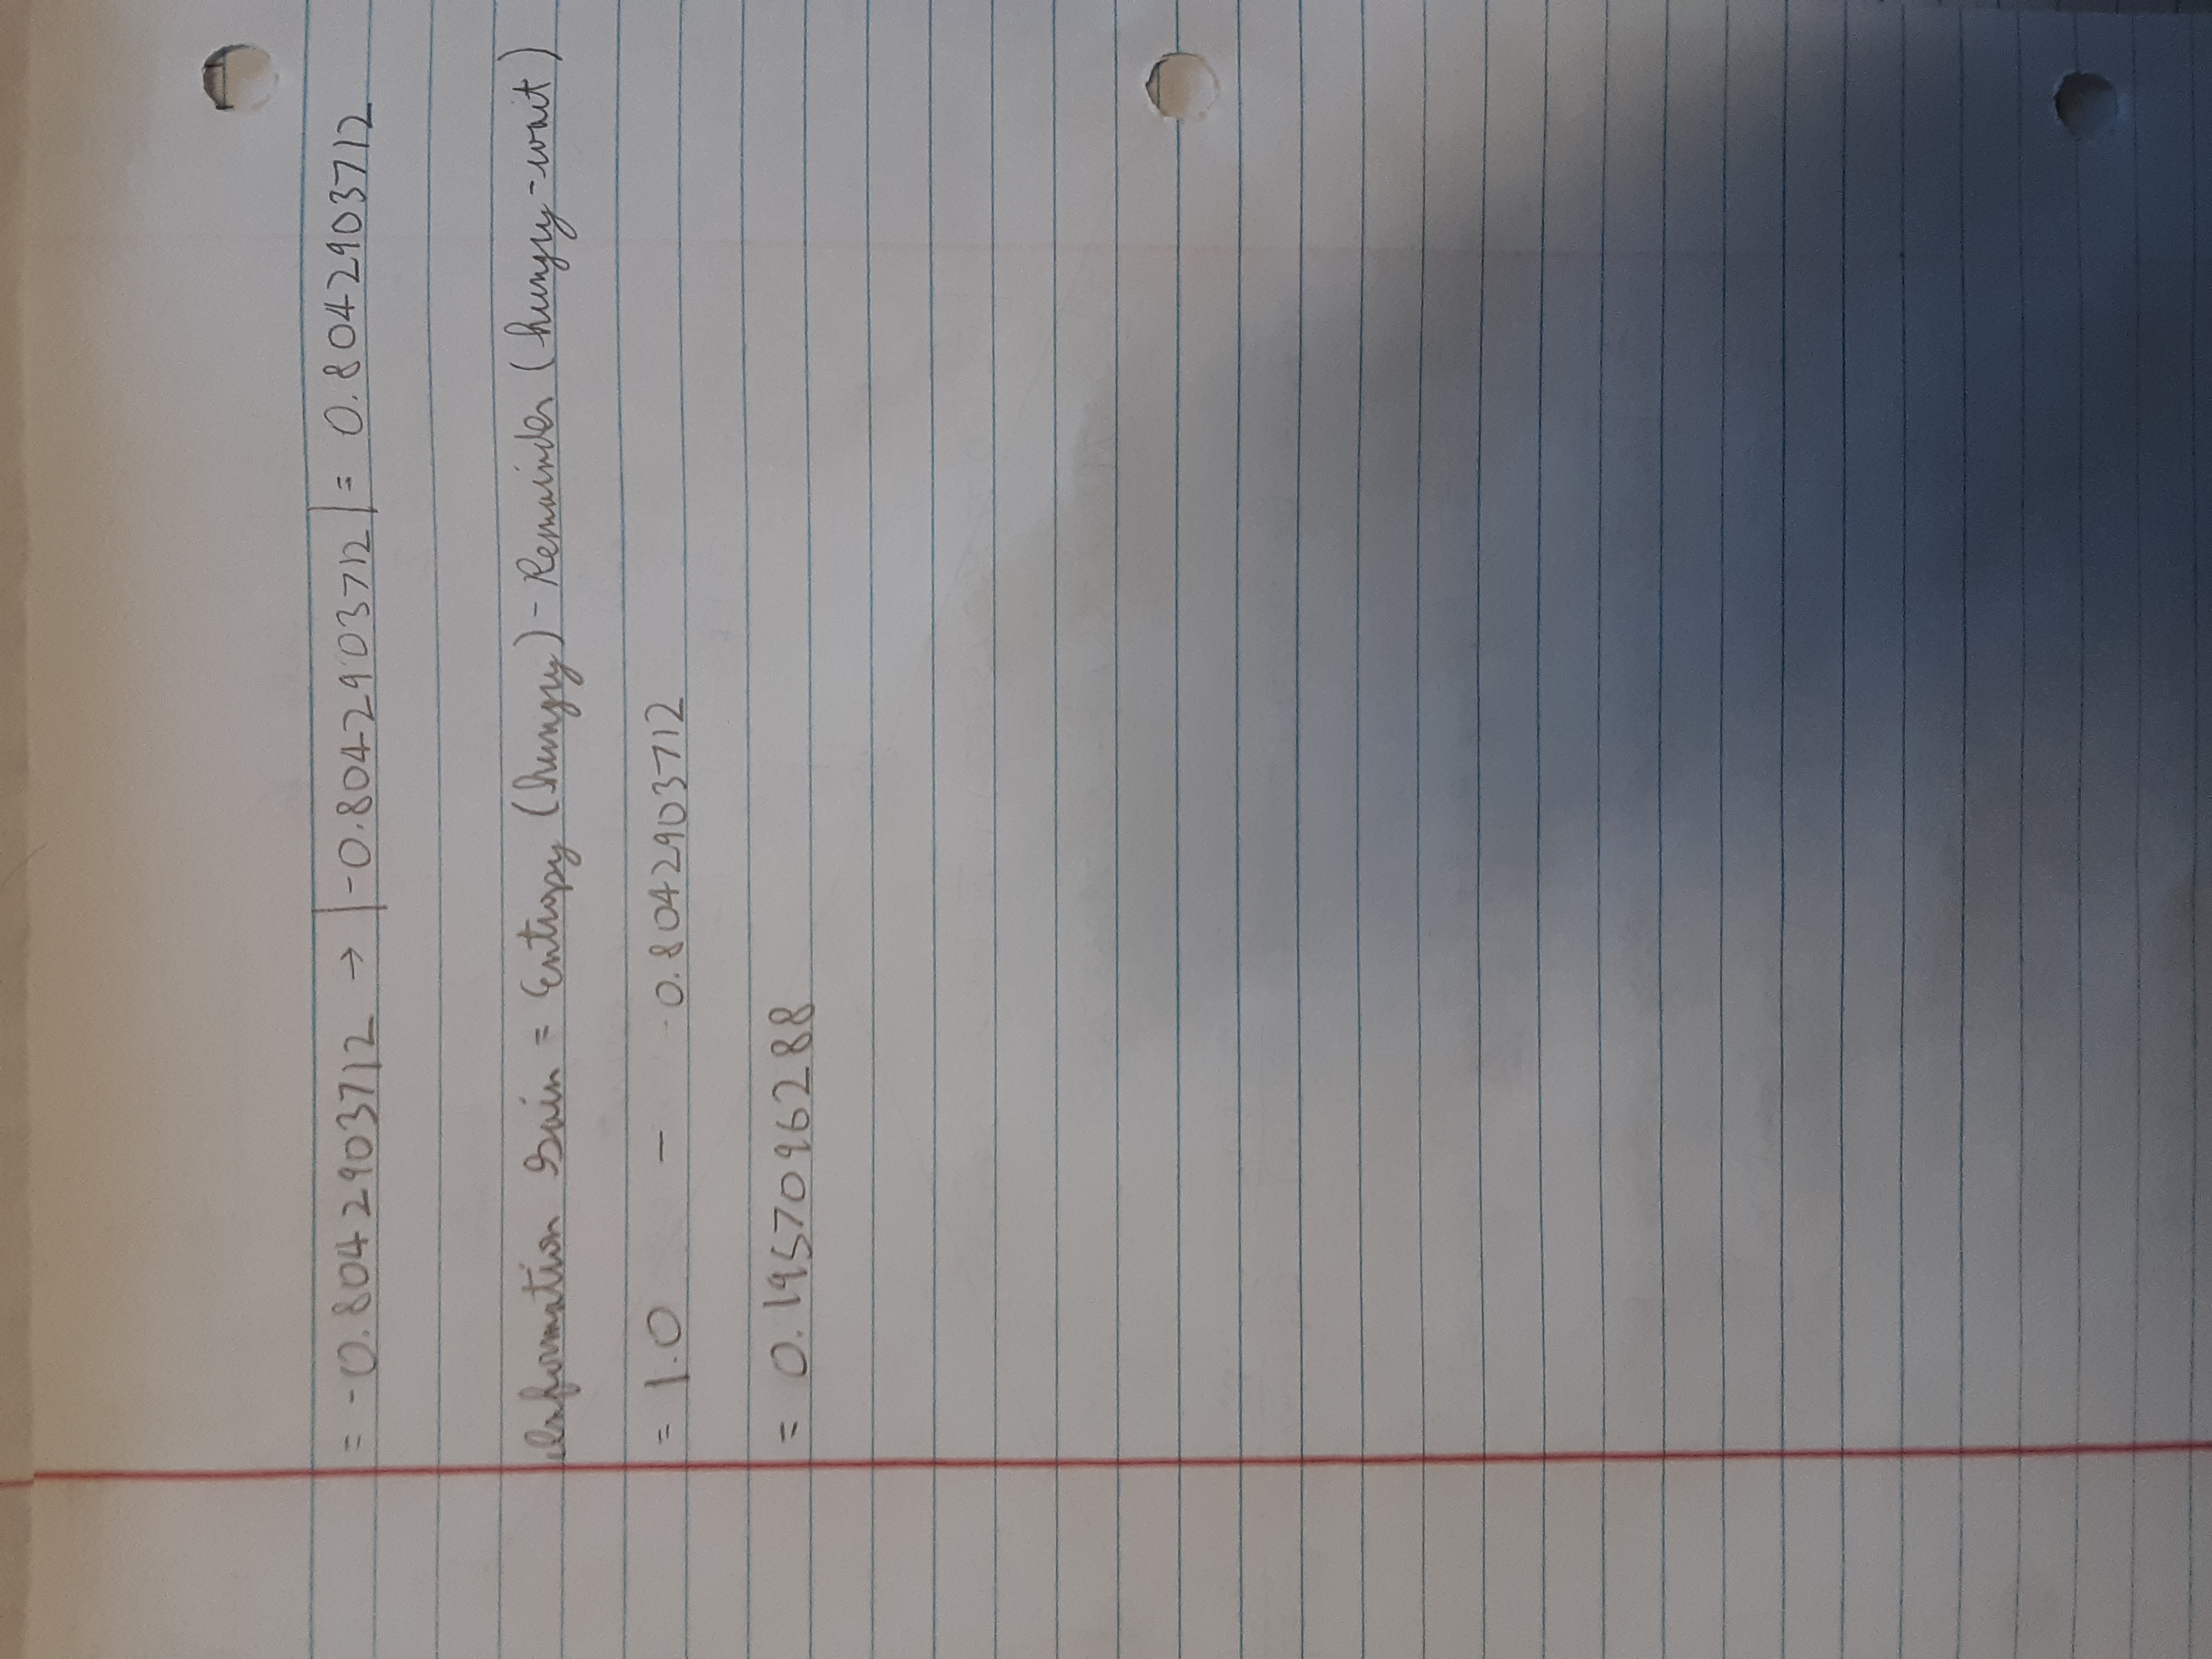 = -0.8042903712 → |-0.8042903712| = 0.8042903712
Information Gain = Entropy (hungry) - Remainder (hungry-wait)
= 1.0 - 0.8042903712
= 0.1957096288